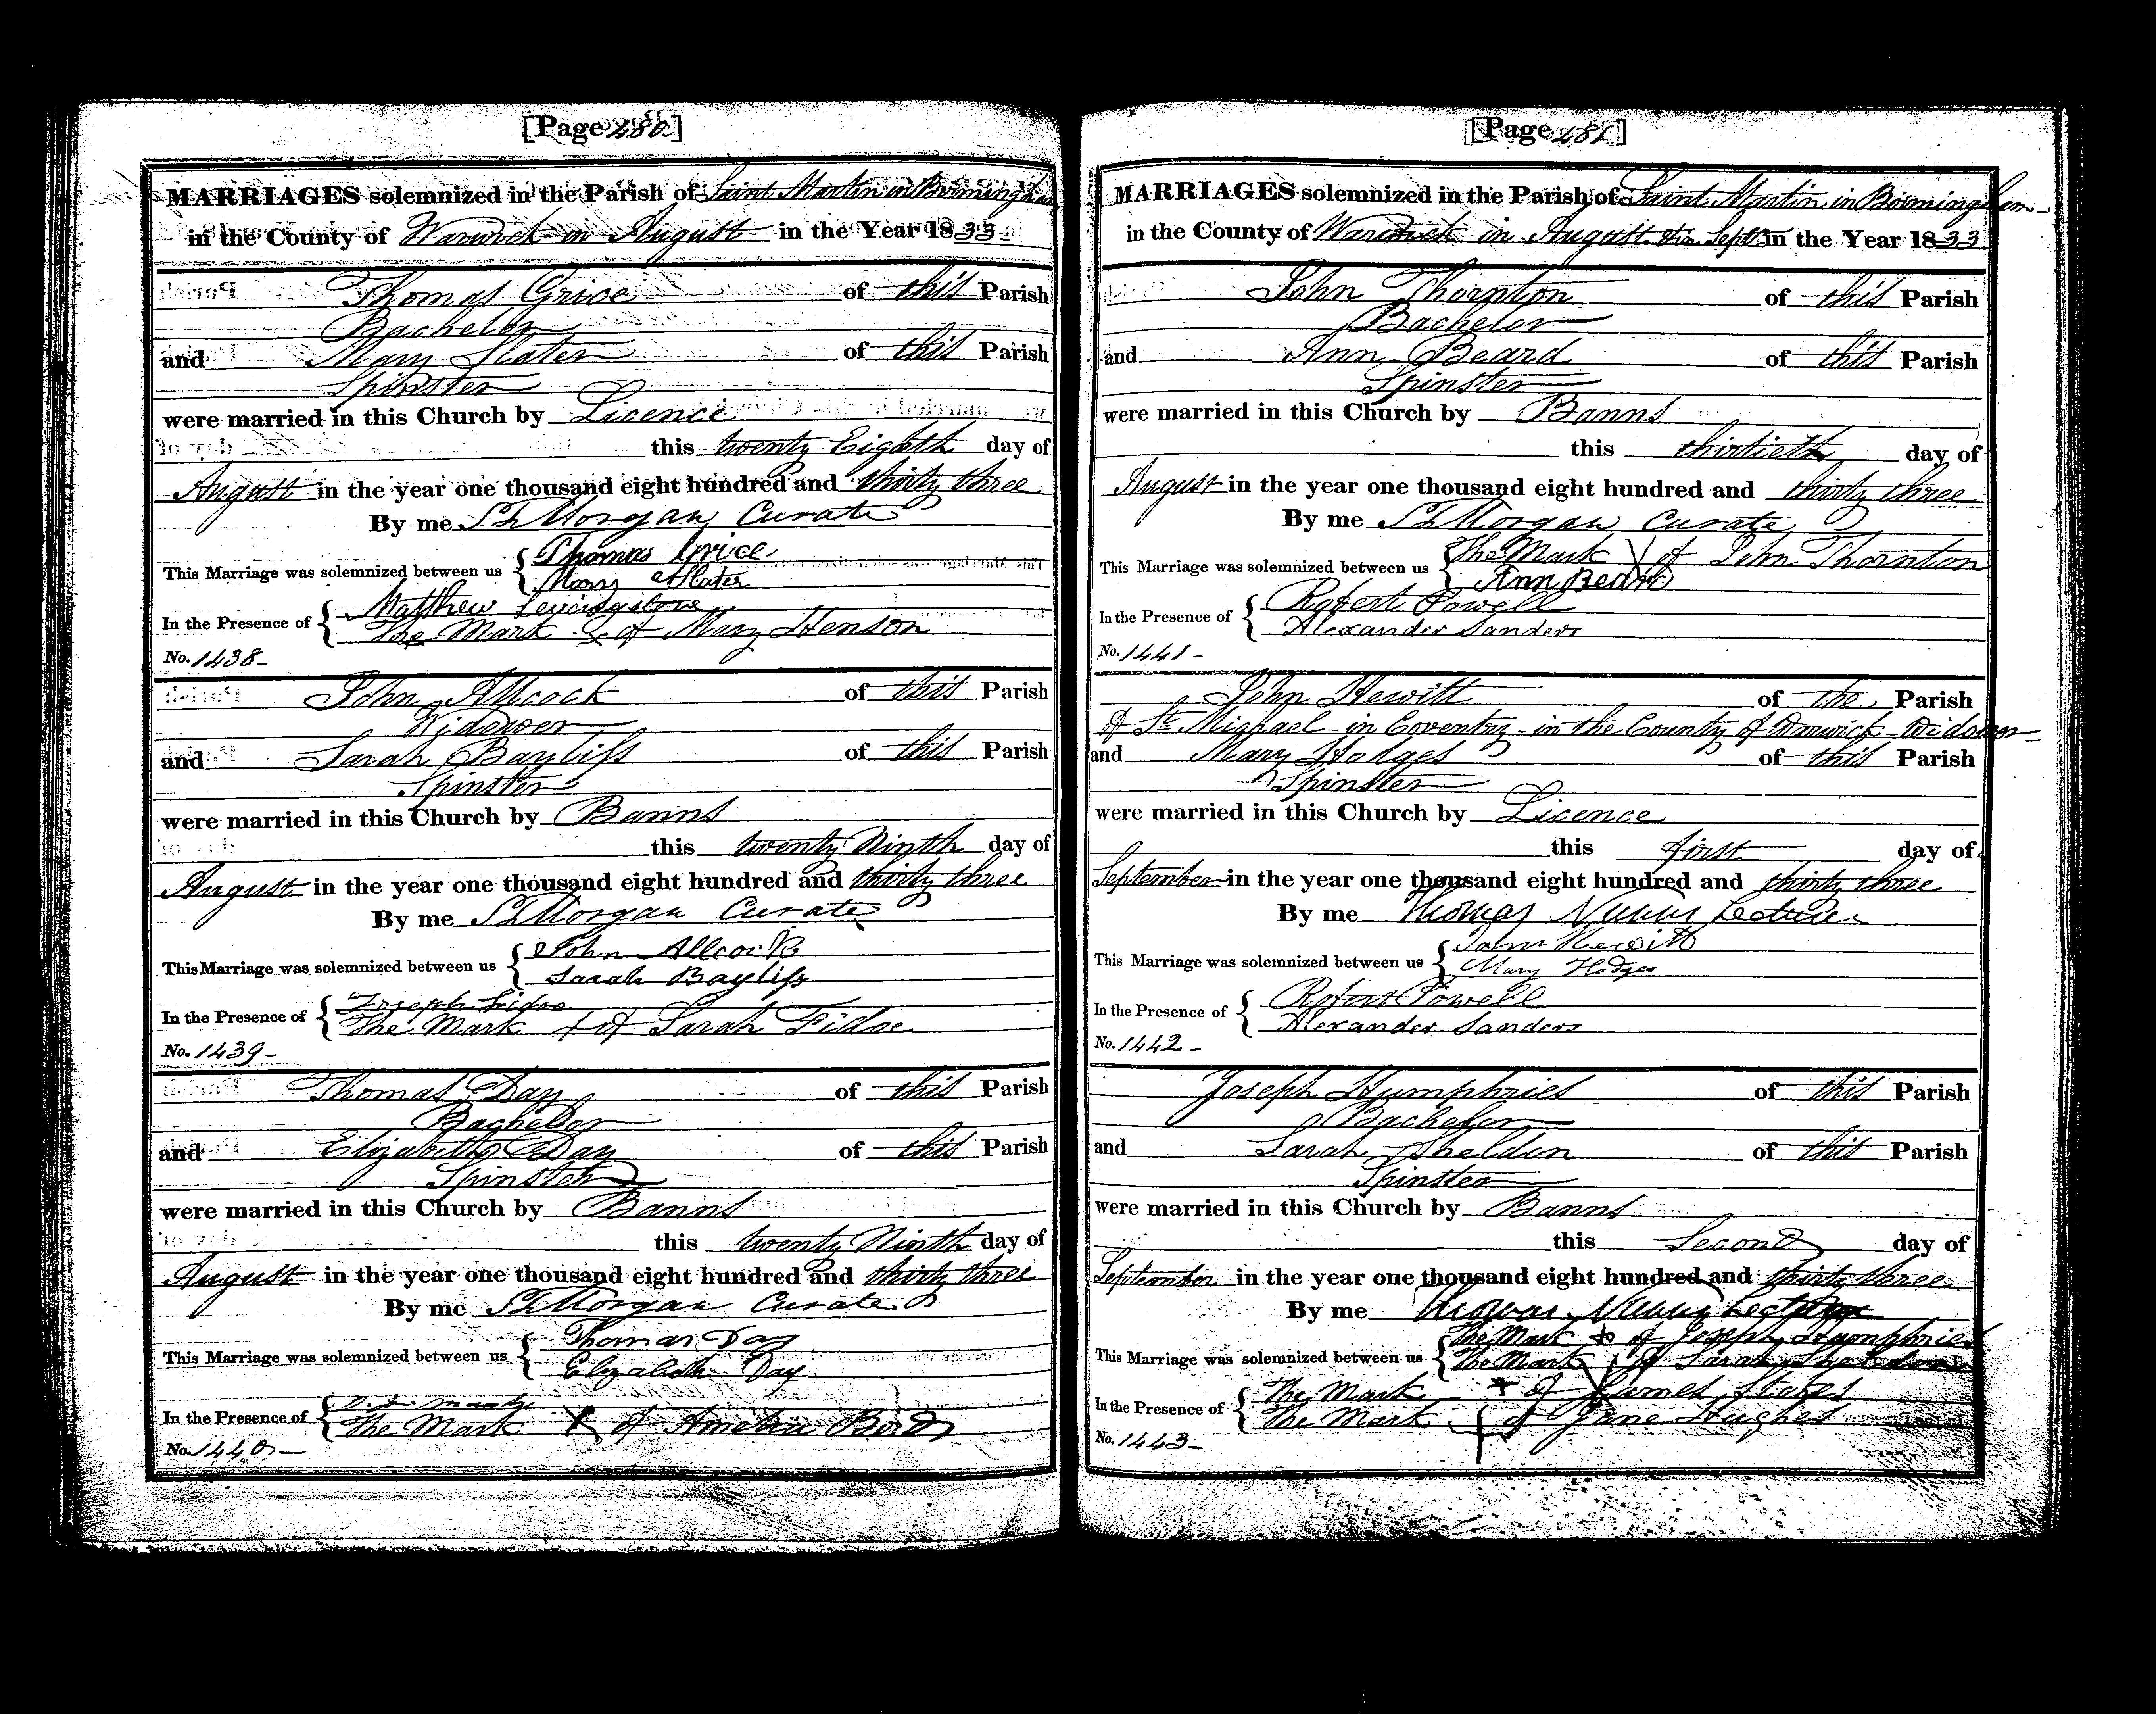 [Page 480.]
MARRIAGES solemnized in the Parish of Saint Martin in Birmingham
in the County of Warwick in August in the Year 1833
Thomas Grice of this Parish
Bachelor
and Mary Slater of this Parish
Spinster
were married in this Church by Licence
this twenty Eighth day of
August in the year one thousand eight hundred and thirty three
By me Morgan Curate
This Marriage was solemnized between us { Thomas Grice
Mary Slater
In the Presence of { Matthew Levingstone
The Mark of Mary Henson
No. 1438
John Allcock of this Parish
Widower
and Sarah Bayliss of this Parish
Spinster
were married in this Church by Banns
this twenty Ninth day of
August in the year one thousand eight hundred and thirty three
By me Morgan Curate
This Marriage was solemnized between us { John Allcock
Sarah Bayliss
In the Presence of { Joseph Fidoe
The Mark + of Sarah Fidoe
No. 1439
Thomas Day of this Parish
Bachelor
and Elizabeth Day of this Parish
Spinster
were married in this Church by Banns
this twenty Ninth day of
August in the year one thousand eight hundred and thirty three
By me Morgan Curate
This Marriage was solemnized between us { Thomas Day
Elizabeth Day
In the Presence of {
The Mark X of Amelia
No. 1440
[Page 481]
MARRIAGES solemnized in the Parish of Saint Martin in Birmingham
in the County of Warwick in August & in Sept in the Year 1833
John Thornton of this Parish
Bachelor
and Ann Beard of this Parish
Spinster
were married in this Church by Banns
this thirtieth day of
August in the year one thousand eight hundred and thirty three
By me Morgan Curate
This Marriage was solemnized between us { The Mark of John Thornton
Ann Beard
In the Presence of { Robert Powell
Alexander Sanders
No. 1441
John Hewitt of the Parish
of St. Michael in Coventry in the County of Warwick Widower
and Mary Hodges of this Parish
Spinster
were married in this Church by Licence
this first day of
September in the year one thousand eight hundred and thirty three
By me Thomas Nunns Lecturer
This Marriage was solemnized between us { John Hewitt
Mary Hodges
In the Presence of { Robert Powell
Alexander Sanders
No. 1442
Joseph Humphries of this Parish
Bachelor
and Sarah Sheldon of this Parish
Spinster
were married in this Church by Banns
this Second day of
September in the year one thousand eight hundred and thirty three
By me Thomas Nunns Lecturer
This Marriage was solemnized between us { The Mark of Joseph Humphries
The Mark of Sarah Sheldon
In the Presence of { The Mark + of James Stokes
The Mark of Jane Hughes
No. 1443